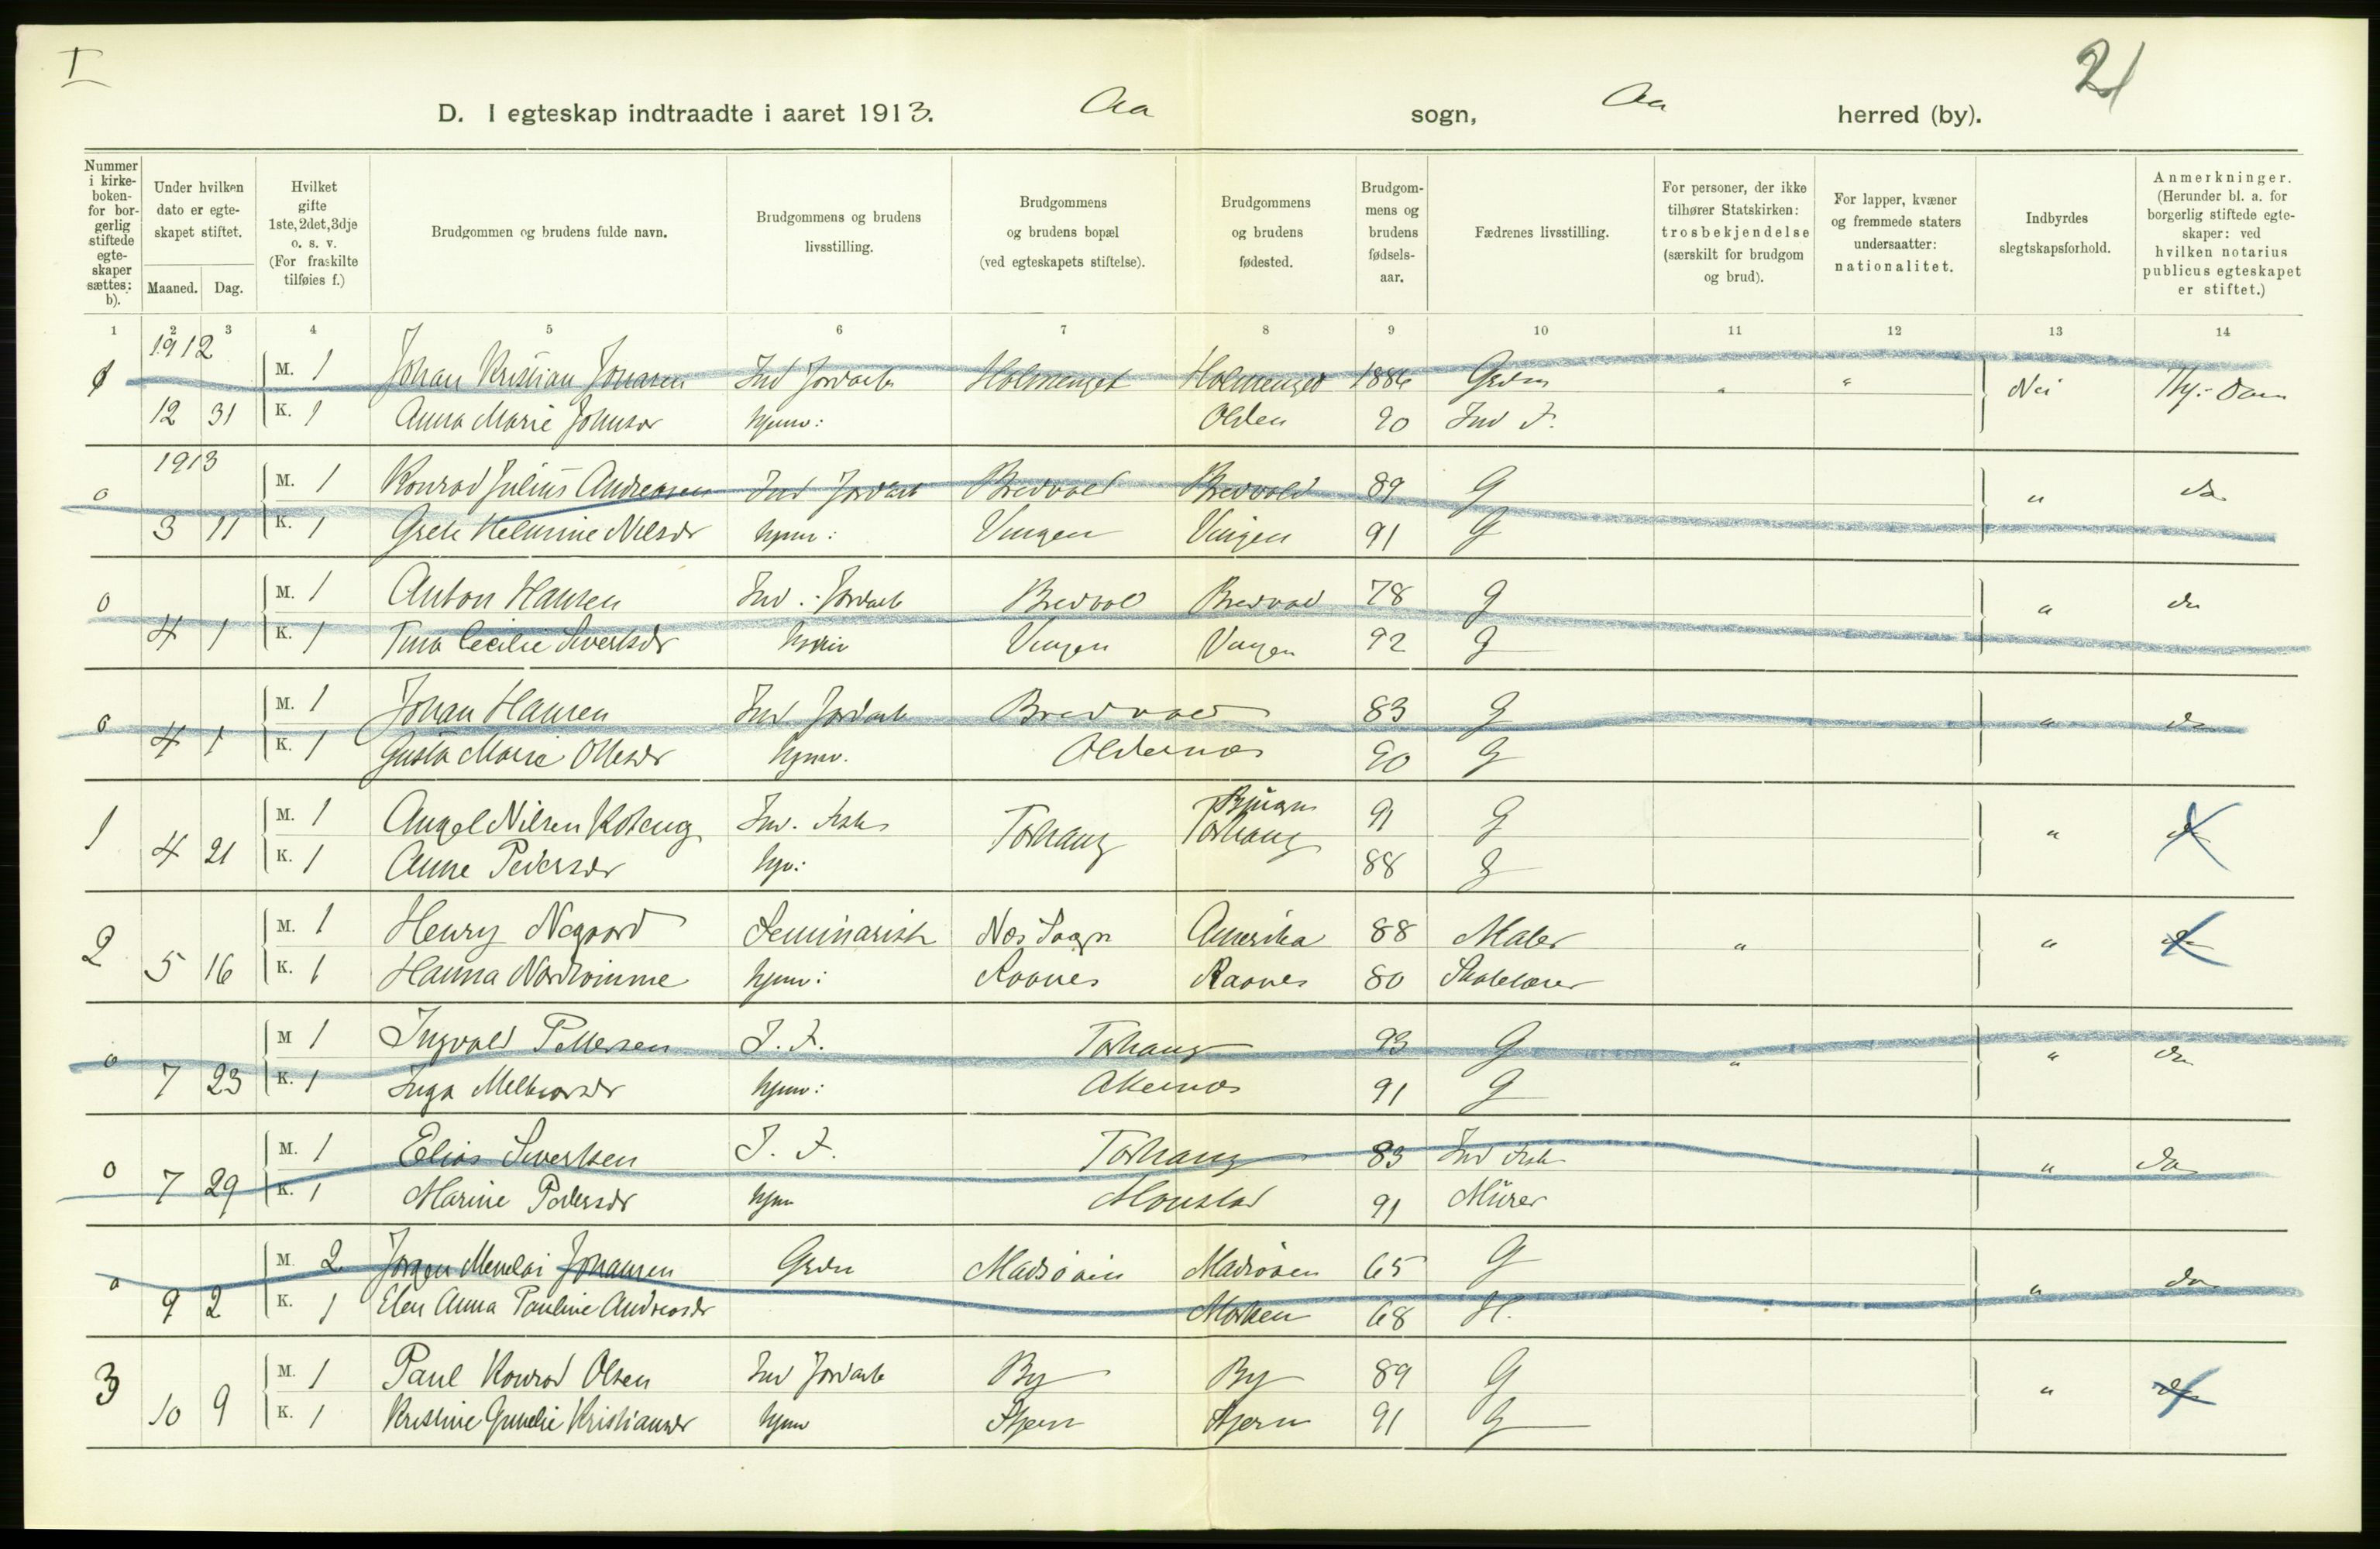 I
21
D. I egteskap indtraadte i aaret 1913. Aa sogn, Aa herred (by).
Nummer i kirke-boken- for bor-gerlig stiftede egte-skaper sættes: b).
Under hvilken dato er egte-skapet stiftet.
Maaned. Dag.
Hvilket gifte 1ste, 2det, 3dje o. s. v. (For fraskilte tilføies f.)
Brudgommen og brudens fulde navn.
Brudgommens og brudens livsstilling.
Brudgommens og brudens bopæl (ved egteskapets stiftelse).
Brudgommens og brudens fødested.
Brudgom-mens og brudens fødsels-aar.
Fædrenes livsstilling.
For personer, der ikke tilhører Statskirken: trosbekjendelse (særskilt for brudgom og brud).
For lapper, kvæner og fremmede staters undersaatter: nationalitet.
Indbyrdes slegtskapsforhold.
Anmerkninger. (Herunder bl. a. for borgerlig stiftede egte-skaper: ved hvilken notarius publicus egteskapet er stiftet.)
1 2 3 4 5 6 7 8 9 10 11 12 13 14
1912
M. 1 Johan Kristian Jonasen Ind Jordarb Holmenget Holmenget 1886 Grdm " " Nei
12 31 K. 1 Anna Marie Johnsdr hjemv: Olden 90 Ind F.
1913
0 M. 1 Konrad Julius Andreasen Ind Jordarb Bredvold Bredvold 89 G " do
3 11 K. 1 Grete Helmine Nilsdr hjemv: Vingen Vingen 91 G
0 M. 1 Anton Hansen Ind. Jordarb Bredvold Bredvold 78 G " do
4 1 K. 1 Tina Cecilie Sivertsdr hjemv Vingen Vingen 92 G
0 M. 1 Johan Hansen Ind Jordarb Bredvold 83 G " do
4 1 K. 1 Gusta Marie Ollesdr hjemv. Oldernæs 90 G
1 M. 1 Angel Nilsen Koteng Ind. Fisk Torhaug Bjugn Torhaug 91 G " do
4 21 K. 1 Anne Pedersdr hjv: 88 G
2 M. 1 Henry Negaard Seminarist Næs Sogn Amerika 88 Maler " " do
5 16 K. 1 Hanna Nordvimme hjemv: Raanes Raanes 80 Skolelærer
0 M 1 Ingvald Pettersen I. F. Torhaug 93 G " " do
7 23 K. 1 Inga Melkiorsdr hjemv: Akernæs 91 G
0 M. 1 Elias Sivertsen I. F. Torhaug 83 Ind Fisk " do
7 29 K. 1 Marine Pedersdr hjem Monstad 91 Murer
0 M. 2 Jørgen Menelai Johansen Grdm Madsøien Madsøien 65 G " do
9 2 K. 1 Elen Anna Pauline Andreasdr Morken 68 H.
3 M. 1 Paul Konrad Olsen Ind Jordarb By By 89 G " do
10 9 K. 1 Kristine Gunelie Kristiansdr hjem Stjern Stjern 91 G